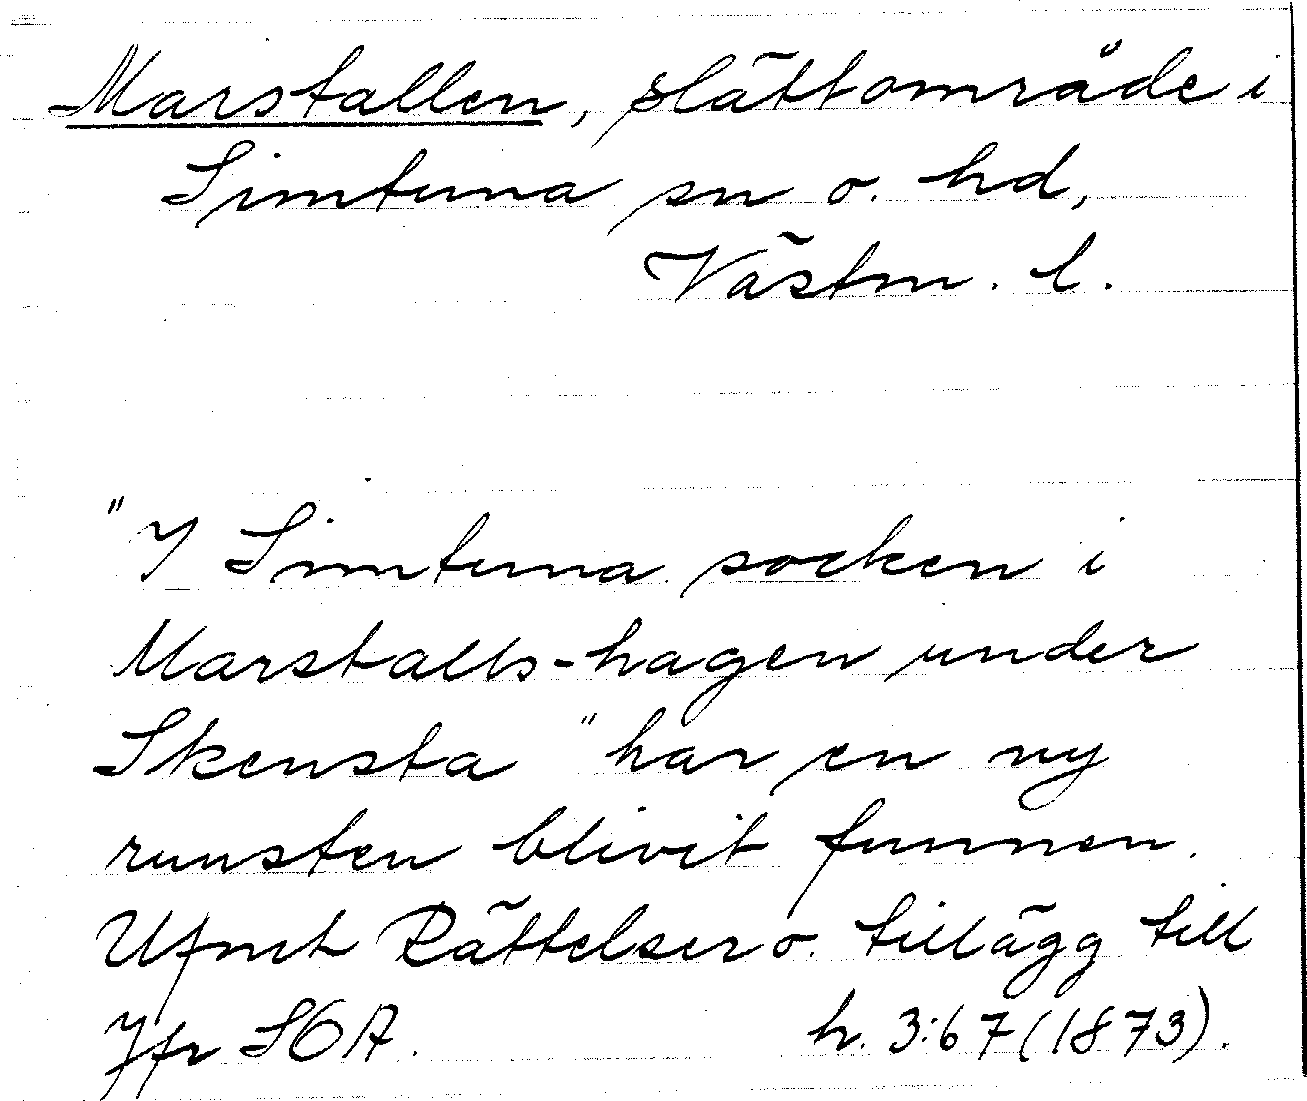 Marstallen, slättområde i
Simtuna sn o. hd,
Västm. l.
"I Simtuna socken i
Marstalls-hagen under
Skensta" har en ny
runsten blivit funnen.
Ufmt Rättelser o. tillägg till
Jfr SOA. h. 3:67 (1873).